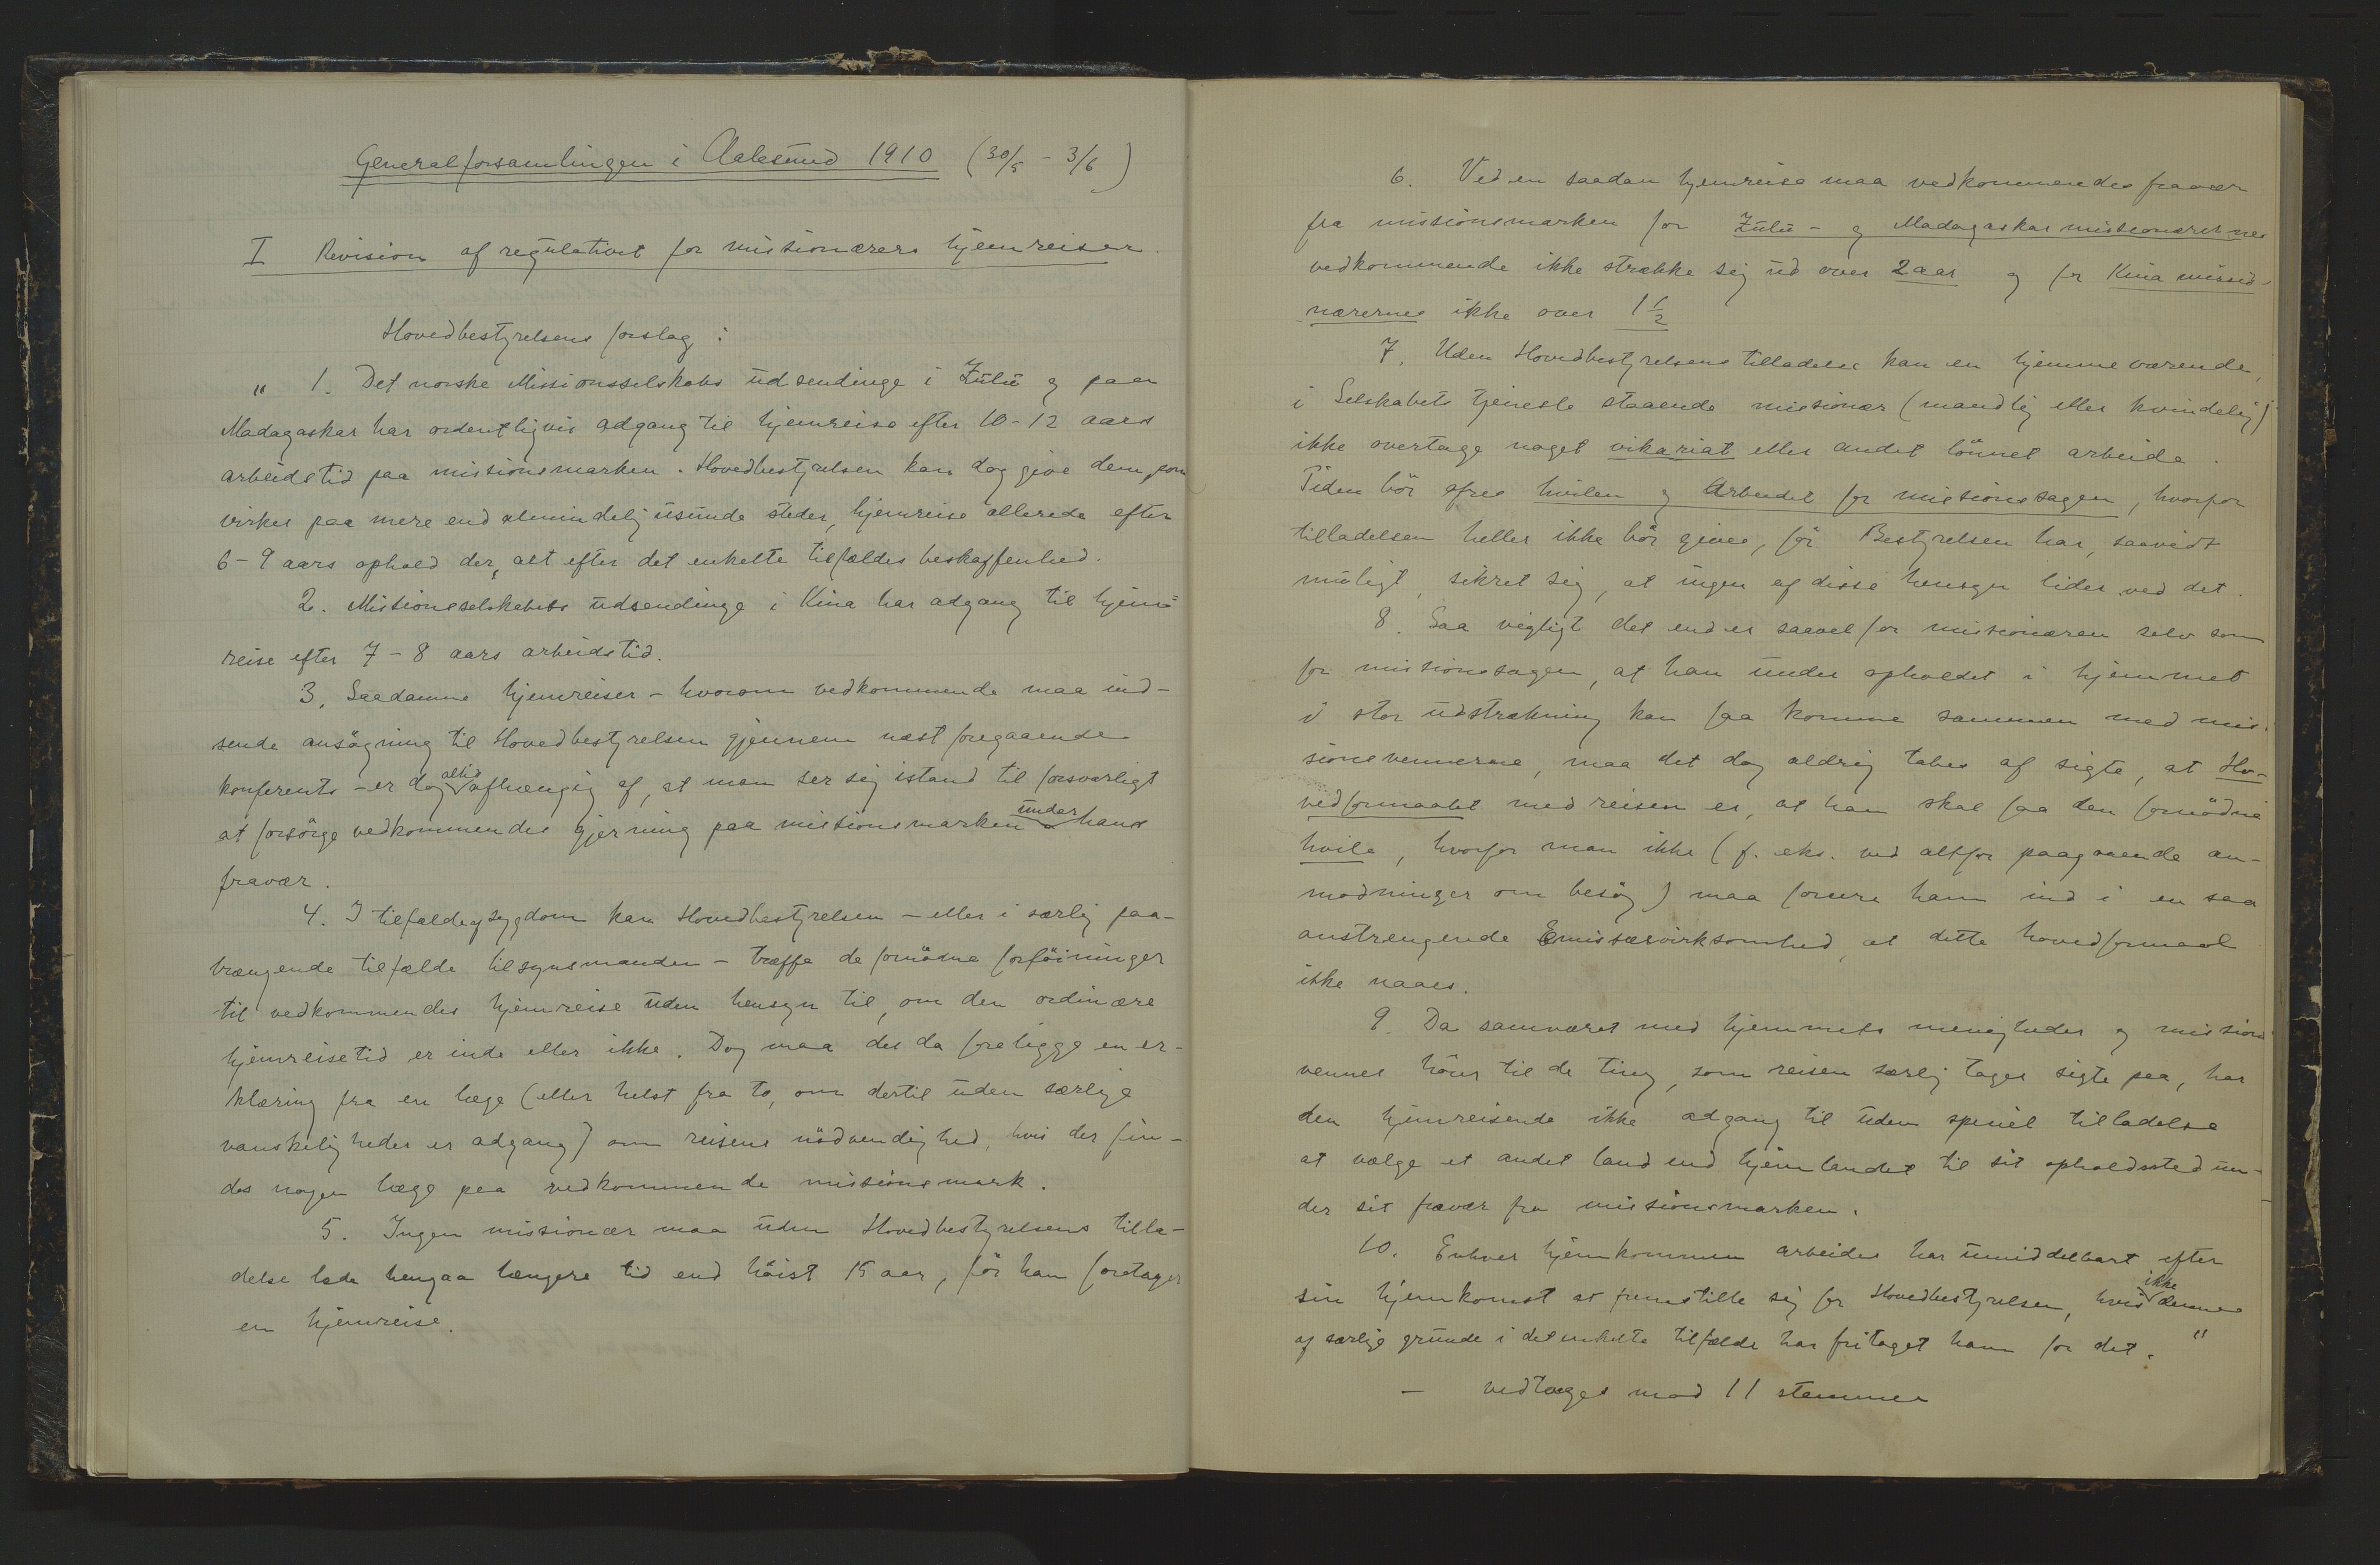 Generalforsamlingen i Aalesund 1910 (30/5 - 3/6)
I Revision af regulativet for missionærers hjemreiser.
Hovedbestyrelsens forslag:
„ 1. Det norske Missionsselskabs udsendinge i Zulu og paa
Madagaskar har ordentligvis adgang til hjemreise efter 10-12 aars
arbeidstid paa missionsmarken. Hovedbestyrelsen kan dog give dem, som
virker paa mere end almindelig usunde steder, hjemreise allerede efter
6-9 aars ophold der, alt efter det enkelte tilfældes beskaffenhed.
2. Missionsselskabets udsendinge i Kina har adgang til hjem-
reise efter 7-8 aars arbeidstid.
3. Saadanne hjemreiser - hvorom vedkommende maa ind-
sende ansögning til Hovedbestyrelsen gjennem næst foregaaende
konferents - er dog altid afhængig af, at man ser sig istand til forsvarligt
at forsörge vedkommendes gjerning paa missionsmarken under hans
fravær.
4. I tilfælde af sygdom kan Hovedbestyrelsen - eller i særlig paa-
trængende tilfælde tilsynsmanden - træffe de fornödne forföininger
til vedkommendes hjemreise uden hensyn til, om den ordinære
hjemreisetid er inde eller ikke. Dog maa der da foreligge en er-
klæring fra en læge (eller helst fra to, om dertil uden særlige
vanskeligheder er adgang) om reisens nödvendighed, hvis der fin-
des nogen læge paa vedkommende missionsmark.
5. Ingen missionær maa uden Hovedbestyrelsens tilla-
delse lade hengaa længere tid end höist 15 aar, för han foretager
en hjemreise.
6. Ved en saadan hjemreise maa vedkommendes fravær
fra missionsmarken for Zulu- og Madagaskarmissionærernes
vedkommende ikke strække sig ud over 2 aar og for Kina missio-
nærernes ikke over 1 1/2
7. Uden Hovedbestyrelsens tilladelse kan en hjemmeværende,
i Selskabets tjeneste staaende missionær (mandlig eller kvindelig)
ikke overtage noget vikariat eller andet lönnet arbeide.
Tiden bör ofres hvilen og Arbeidet for missionssagen, hvorfor
tilladelsen heller ikke bör gives, för Bestyrelsen har, saavidt
muligt, sikret sig, at ingen af disse hensyn lider ved det.
8. Saa vigtigt det end er saavel for missionæren selv som
for missionssagen, at han under opholdet i hjemmet
i stor udstrækning kan faa komme sammen med mis-
sionsvennerne, maa det dog aldrig tabes af sigte, at Ho-
vedformaalet med reisen er, at han skal faa den fornödne
hvile, hvorfor man ikke (f. eks. ved altfor paagaaende an-
modninger om besög) maa forcere ham ind i en saa
anstrengende Emissærvirksomhed, at dette hovedformaal
ikke naaes.
9. Da samværet med hjemmets menigheder og missions
venner hörer til de ting, som reisen særlig tager sigte paa, har
den hjemreisende ikke adgang til uden speciel tilladelse
at vælge et andet land end hjemlandet til sit opholdssted un-
der sit fravær fra missionsmarken.
10. Enhver hjemkommen arbeider har umiddelbart efter
sin hjemkomst at fremstille sig for Hovedbestyrelsen, hvis ikke denne
af særlige grunde i det enkelte tilfælde har fritaget ham for det. "
- vedtoges mod 11 stemmer